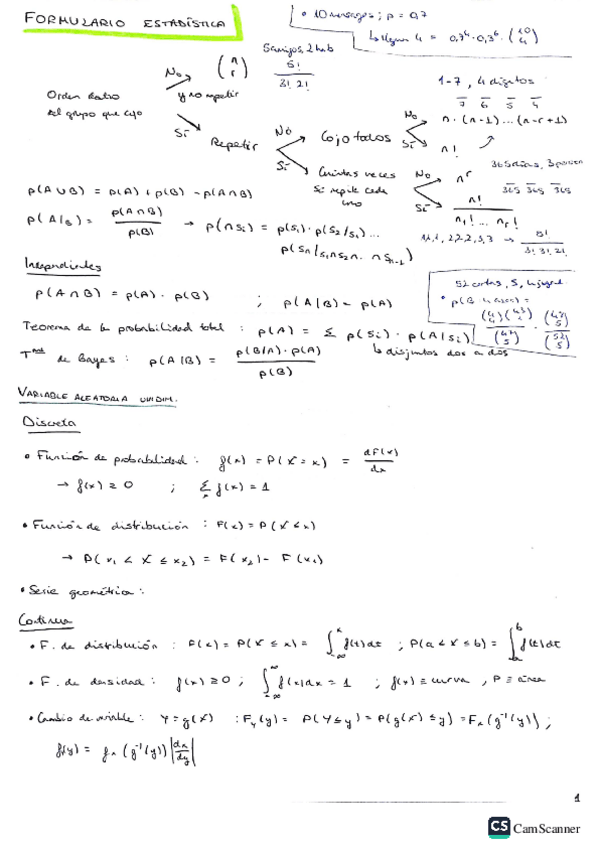 FORMULARIO ESTADÍSTICA
• 10 mensajes ; p = 0,7
4 = 0,7⁴ · 0,3⁶ · (10 4)
5 amigos, 2 hab
5! / 3! 2!
No (n r)
Orden dentro del grupo que cojo
y no repetir
Sí
Repetir
No
Cojo todos
No n · (n-1) ... (n-r+1)
Sí n!
1-7, 4 dígitos
7 6 5 4
Sí
Cuántas veces se repite cada uno
No nʳ
Sí n! / n₁! ... nᵣ!
365 días, 3
365 365 365
1,1,1, 2,2,2, 3,3 → 8! / 3! 3! 2!
p(A∪B) = p(A) + p(B) - p(A∩B)
p(A/B) = p(A∩B) / p(B) → p(∩Si) = p(S₁) · p(S₂/S₁) ...
p(Sn/S₁∩S₂∩. ∩Sn-1)
Independientes
p(A∩B) = p(A) · p(B) ; p(A|B) = p(A)
52 cartas, 5,
Teorema de la probabilidad total : p(A) = Σ p(Si) · p(A|Si)
↳ disjuntos dos a dos
de Bayes : p(A|B) = p(B/A) · p(A) / p(B)
VARIABLE ALEATORIA UNIDIM.
Discreta
• Función de probabilidad : f(x) = P(X = x) = dF(x) / dx
→ f(x) ≥ 0 ; Σ f(x) = 1
x
• Función de distribución : F(x) = P(X ≤ x)
→ P(x₁ < X ≤ x₂) = F(x₂) - F(x₁)
• Serie geométrica :
Continua
• F. de distribución : F(x) = P(X ≤ x) = ∫₋∞ˣ f(t)dt ; P(a < X ≤ b) = ∫ₐᵇ f(t)dt
• F. de densidad : f(x) ≥ 0 ; ∫₋∞^∞ f(x)dx = 1 ; f(x) ≡ curva , P ≡ área
• Cambio de variable : Y = g(X) : Fy(y) = P(Y ≤ y) = P(g(X) ≤ y) = Fx(g⁻¹(y)) ;
f(y) = fx (g⁻¹(y)) |dx/dy|
1
CS CamScanner